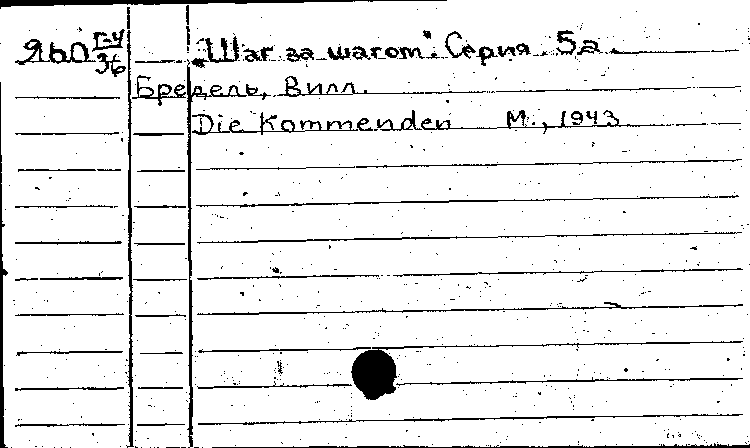 ЯЬО Г-4/36 „Шаг за шагом". Серия 5а.
Бредель, Вилл.
Die Kommenden М., 1943